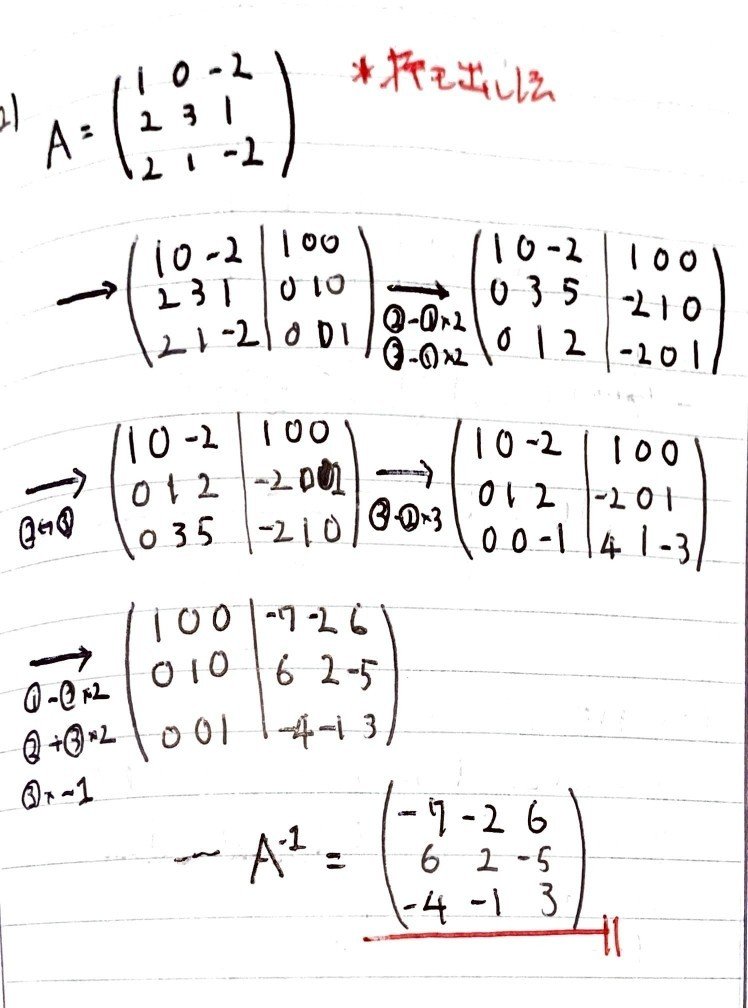 2) A = ( 1 0 -2 / 2 3 1 / 2 1 -2 ) *掃き出し法
→ ( 1 0 -2 | 1 0 0 / 2 3 1 | 0 1 0 / 2 1 -2 | 0 0 1 ) → ②-①×2 ③-①×2 ( 1 0 -2 | 1 0 0 / 0 3 5 | -2 1 0 / 0 1 2 | -2 0 1 )
→ ②↔③ ( 1 0 -2 | 1 0 0 / 0 1 2 | -2 0 1 / 0 3 5 | -2 1 0 ) → ( 1 0 -2 | 1 0 0 / 0 1 2 | -2 0 1 / 0 0 -1 | 4 1 -3 )
→ ②+③×2 ③×-1 ( 1 0 0 | -7 -2 6 / 0 1 0 | 6 2 -5 / 0 0 1 | -4 -1 3 )
A⁻¹ = ( -7 -2 6 / 6 2 -5 / -4 -1 3 )